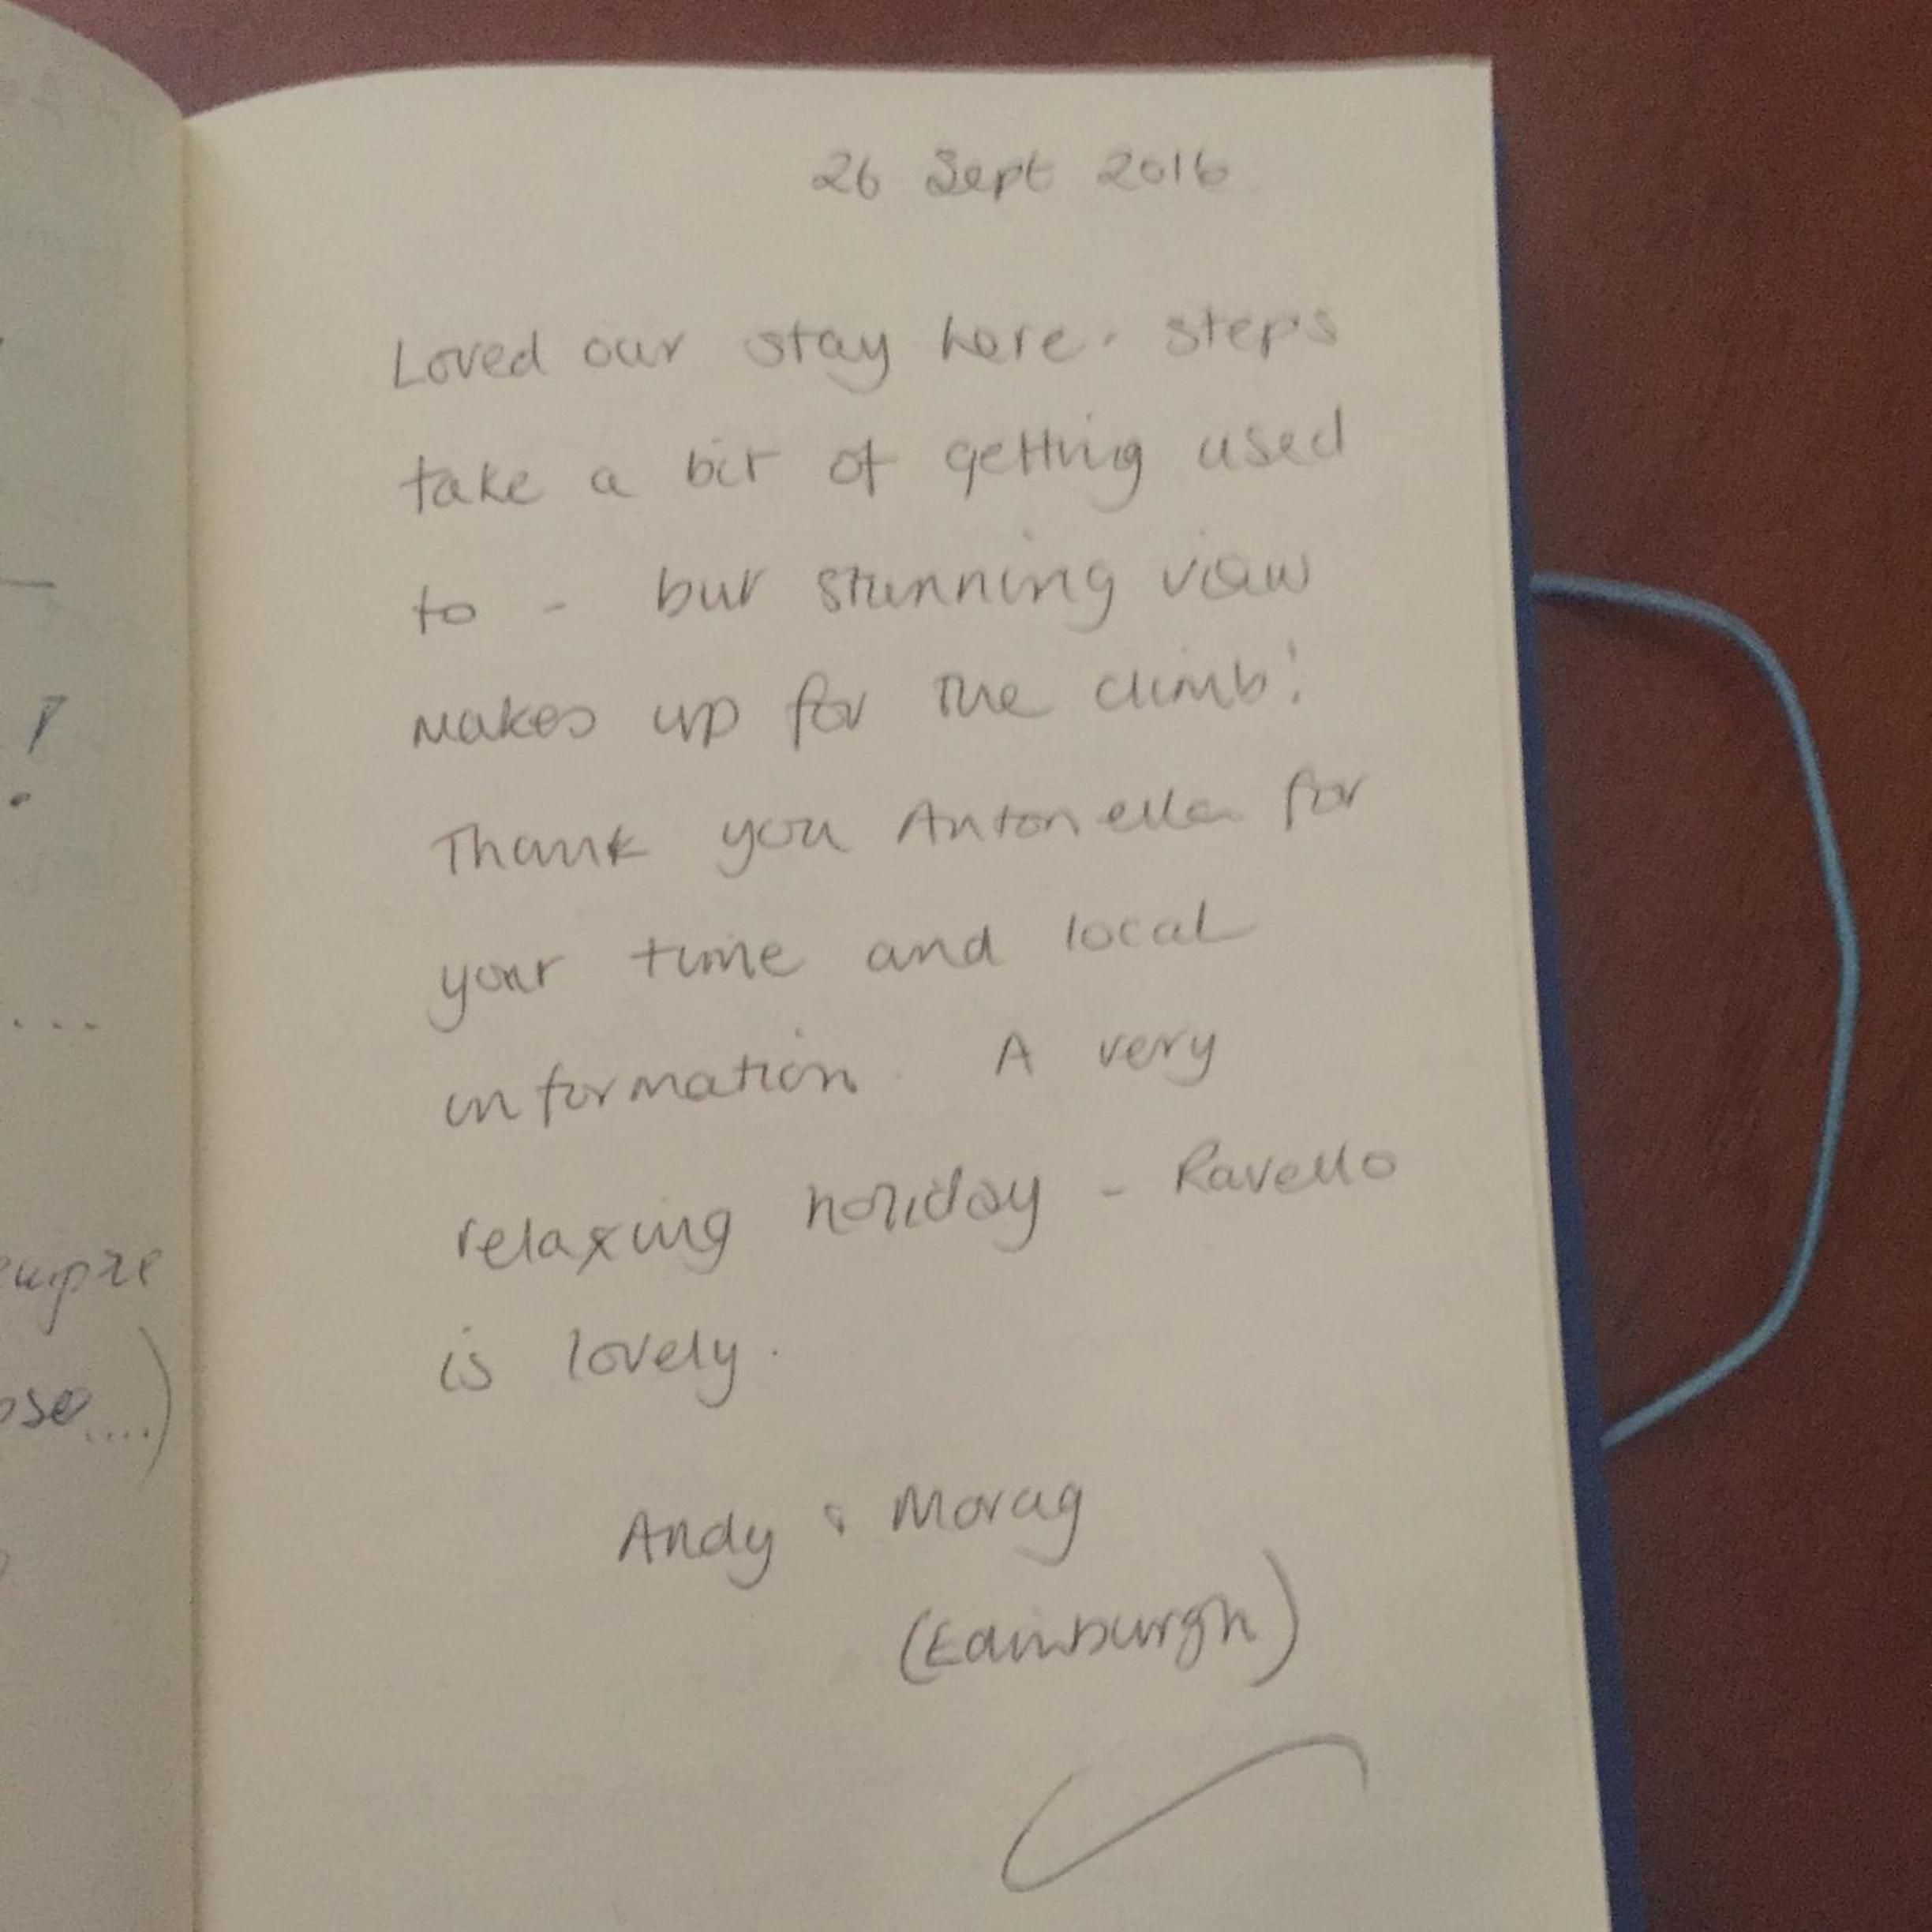 26 Sept 2016
Loved our stay here. Steps
take a bit of getting used
to - but stunning view
makes up for the climb!
Thank you Antonella for
your time and local
information. A very
relaxing holiday - Ravello
is lovely.
Andy & Morag
(Edinburgh)